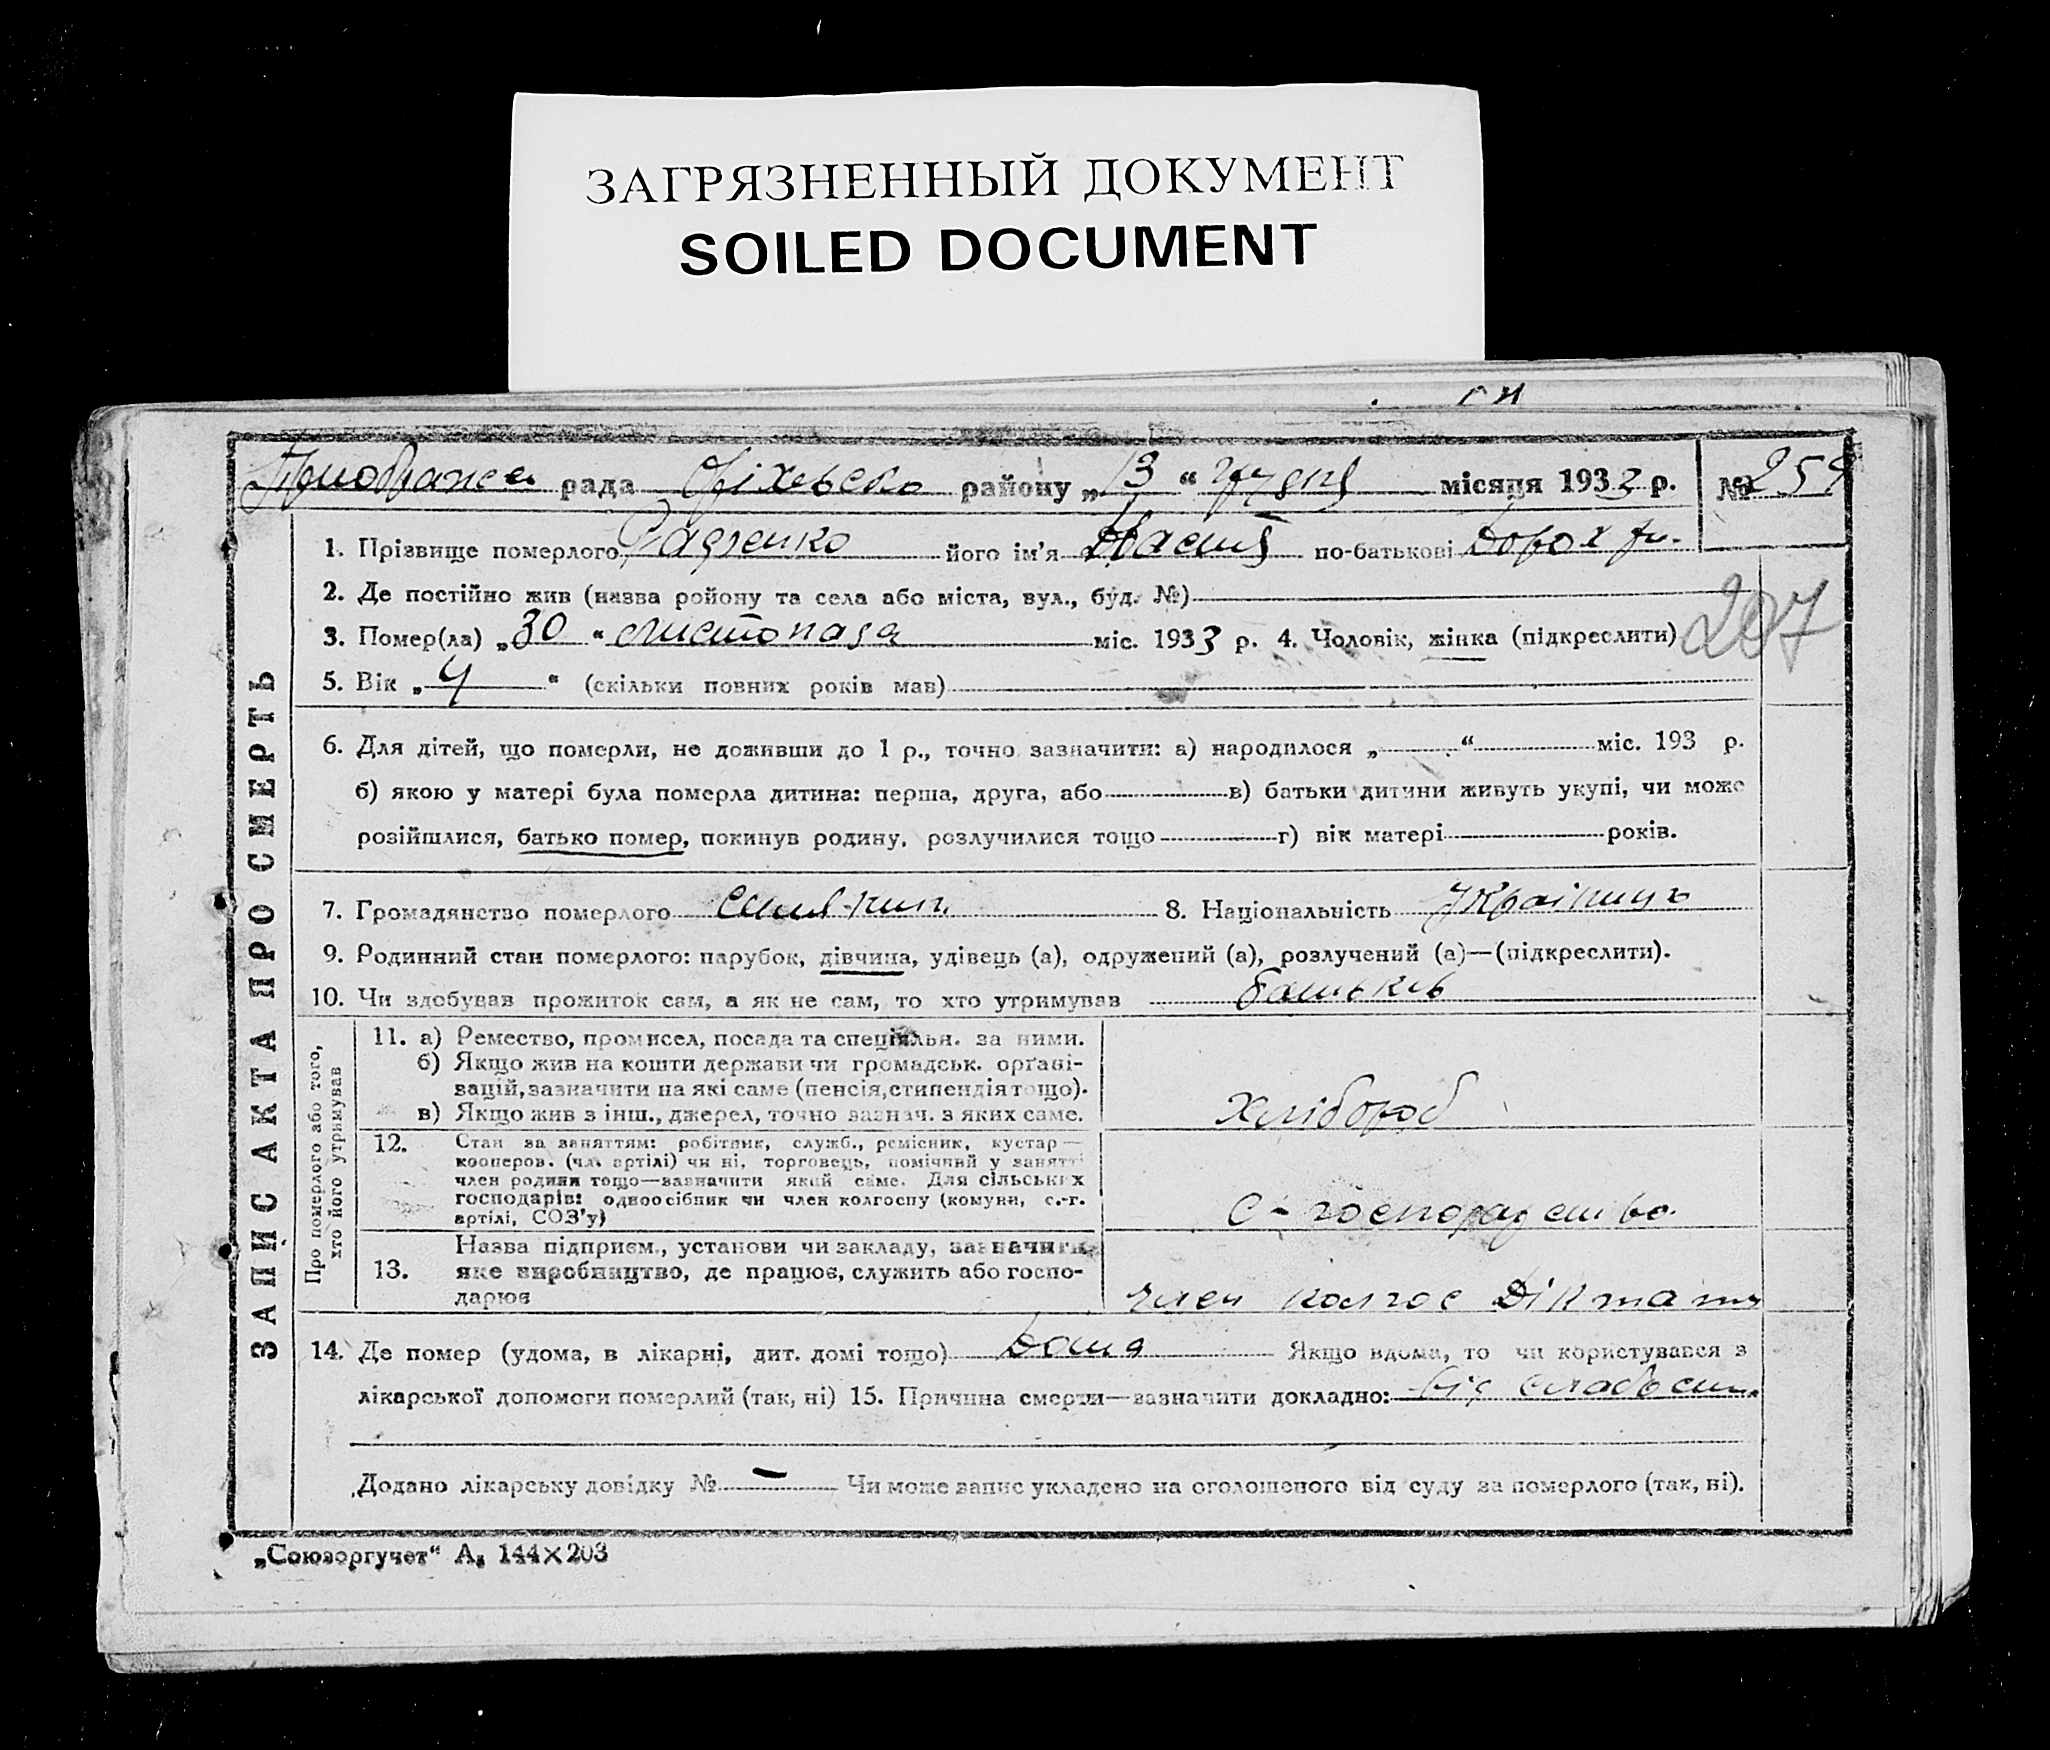 ЗАГРЯЗНЕННЫЙ ДОКУМЕНТ
SOILED DOCUMENT
рада Оріхівсько району „13“ грудня місяця 1933 р. № 259
1. Прізвище померлого Радченко його ім’я по-батькові
2. Де постійно жив (назва ройону та села або міста, вул., буд. №)
207
3. Помер(ла) „30“ листопада міс. 1933 р. 4. Чоловік, жінка (підкреслити)
5. Вік „4“ (скільки повних років мав)
6. Для дітей, що померли, не доживши до 1 р., точно зазначити: а) народилося „ “ міс. 193 р.
б) якою у матері була померла дитина: перша, друга, або в) батьки дитини живуть укупі, чи може
розійшлися, батько помер, покинув родину, розлучилися тощо г) вік матері років.
7. Громадянство померлого 8. Національність Українць
9. Родинний стан померлого: парубок, дівчина, удівець (а), одружений (а), розлучений (а)—(підкреслити).
10. Чи здобував прожиток сам, а як не сам, то хто утримував батьків
ЗАПИС АКТА ПРО СМЕРТЬ
Про померлого або того, хто його утримував
11. а) Ремество, промисел, посада та спеціяльн. за ними.
б) Якщо жив на кошти держави чи громадськ. орґані-
зацій, зазначити на які саме (пенсія, стипендія тощо).
в) Якщо жив з інш., джерел, точно зазнач. з яких саме.
хлібороб
12. Стан за заняттям: робітник, служб., ремісник, кустар—
кооперов. (чл. артілі) чи ні, торговець, помічний у занятті
член родини тощо—зазначити який саме. Для сільських
господарів: одноосібник чи член колгоспу (комуни, с.-г.
артілі, СОЗ’у)
с-господарство
Назва підприєм., установи чи закладу, зазначити
13. яке виробництво, де працює, служить або госпо-
дарює
член колгос Діктату
14. Де помер (удома, в лікарні, дит. домі тощо) Дома Якщо вдома, то чи користувався з
лікарської допомоги померлий (так, ні) 15. Причина смерти—зазначити докладно: від слабост.
Додано лікарську довідку № — Чи може запис укладено на оголошеного від суду за померлого (так, ні).
„Союзоргучет“ А₅ 144×203